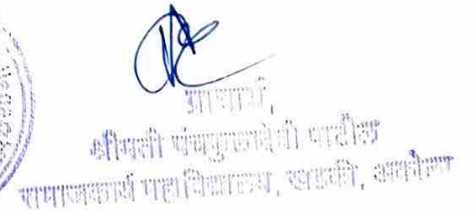 प्राचार्य,
श्रीमती पंचफुलादेवी पाटील
समाजकार्य महाविद्यालय, खडकी, अकोला